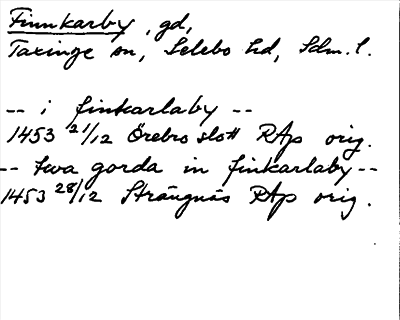 Finnkarby, gd,
Taxinge sn, Selebo hd, Sdm. l.
-- i finkarlaby --
1453 21/12 Örebro slott RAp orig.
-- twa gorda in finkarlaby --
1453 28/12 Strängnäs RAp orig.